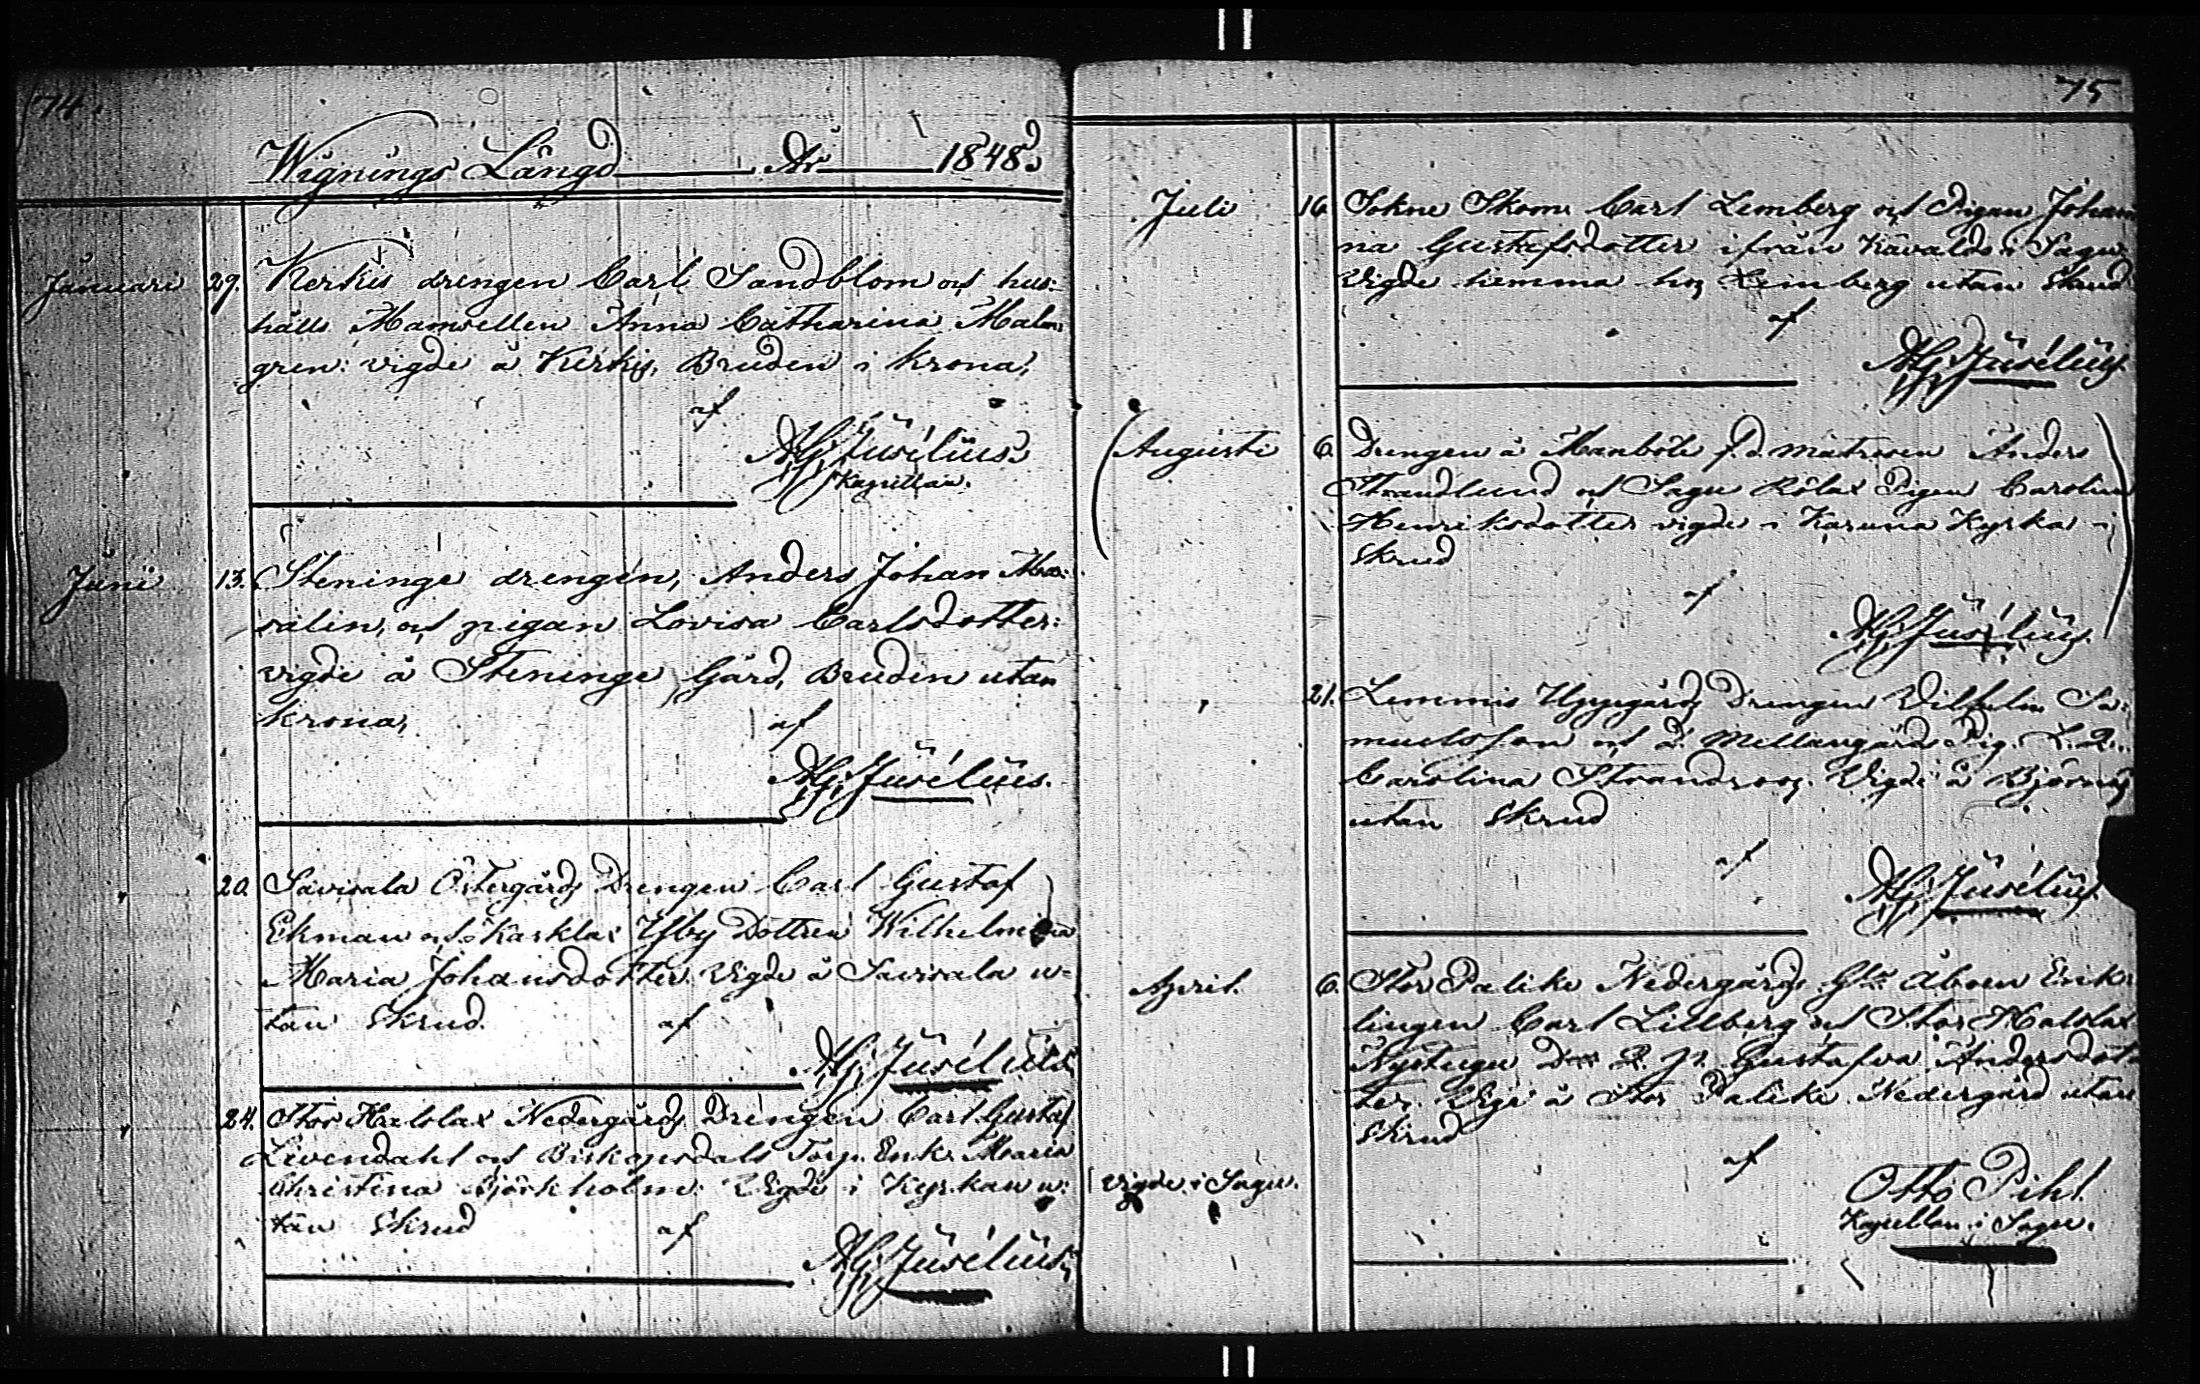 74.
Wignings Längd År 1848.
Januari 29. Kerkis drengen Carl Sandblom och hus:
hålls Mamsellen Anna Catharina Malm:
gren: vigde å Kerkis, Bruden i krona,
af
AG Jusélius.
Kapellan.
Juni 13. Steninge drengen, Anders Johan
salin, och pigan Lovisa Carlsdotter:
vigde å Steninge Gård, Bruden utan
krona,
af
AG Jusélius.
" 20. Savisala Östergårds Drengen Carl Gustaf
Ekman och Karklax Yfby Dottren Wilhelmina
Maria Johansdotter. Vigde å Savisala u-
tan Skrud.
af
AG Jusélius
" 24. Stor Halslax Nedergårds Drengen Carl Gustaf
Levendahl och Biskopsdals Torp. Enk. Maria
Christina Björkholm. Vigde i Kyrkan u:
tan Skrud
af
AG Jusélius
75
Juli 16 Sokne Skom. Carl Lemberg och Pigan Johan
na Gustafsdotter ifrån Kavaldo i Sagu
Vigde hemma hos Lemberg utan Skrud
af
AG Jusélius.
Augusti 6. Drengen å Manböle f.d. matrosen Anders
Strandlund och Sagu Rölax Pigan Carolina
Henriksdotter vigde i Karuna Kyrka i
Skrud
af
AG Jusélius.
" 21. Lemmis Uppgårds Drengen Vilhelm Sa:
muelsson och d. Mellangårds Pig.
Carolina Strandroos. Vigde å Björnäs
utan Skrud
af
AG Jusélius.
April. 6. Stor Palike Nedergårds Åboen Enk:
lingen Carl Lillberg och Stor Halslax
Nystugu Gustafva Andersdot
ter. Vigd å Stor Palike Nedergård utan
Skrud
af
Vigde i Sagu.
Otto Pihl.
Kapellan i Sagu.